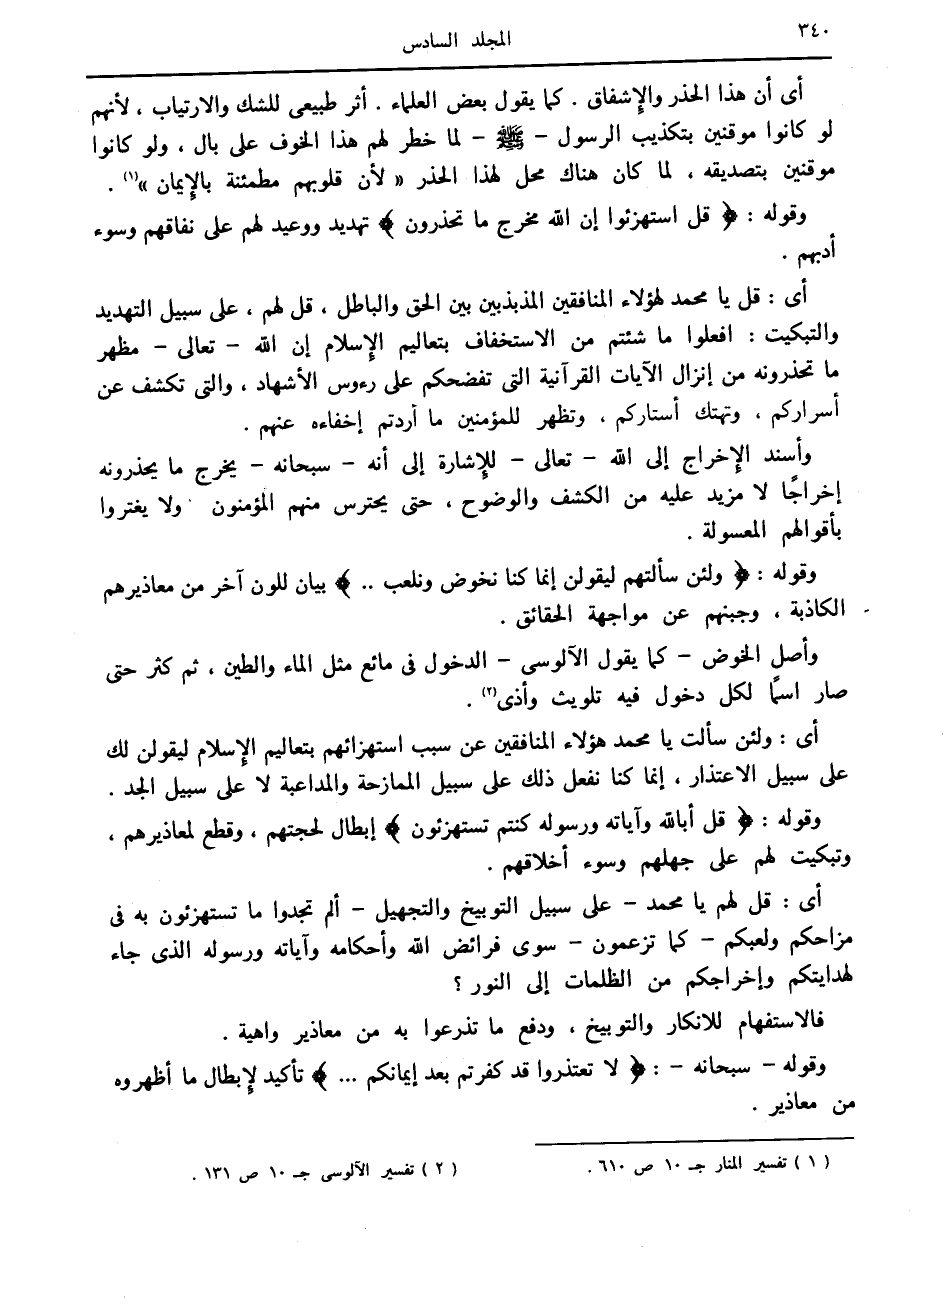 ٣٤٠
المجلد السادس
أى أن هذا الحذر والإشفاق . كما يقول بعض العلماء . أثر طبيعى للشك والارتياب ، لأنهم
لو كانوا موقنين بتكذيب الرسول – ﷺ – لما خطر لهم هذا الخوف على بال ، ولو كانوا
موقنين بتصديقه ، لما كان هناك محل لهذا الحذر « لأن قلوبهم مطمئنة بالإيمان »(١) .
وقوله : ﴿ قل استهزئوا إن الله مخرج ما تحذرون ﴾ تهديد ووعيد لهم على نفاقهم وسوء
أدبهم .
أى : قل يا محمد لهؤلاء المنافقين المذبذبين بين الحق والباطل ، قل لهم ، على سبيل التهديد
والتبكيت : افعلوا ما شئتم من الاستخفاف بتعاليم الإسلام إن الله – تعالى – مظهر
ما تحذرونه من إنزال الآيات القرآنية التى تفضحكم على رءوس الأشهاد ، والتى تكشف عن
أسراركم ، وتهتك أستاركم ، وتظهر للمؤمنين ما أردتم إخفاءه عنهم .
وأسند الإخراج إلى الله – تعالى – للإشارة إلى أنه – سبحانه – يخرج ما يحذرونه
إخراجًا لا مزيد عليه من الكشف والوضوح ، حتى يحترس منهم المؤمنون ولا يغتروا
بأقوالهم المعسولة .
وقوله : ﴿ ولئن سألتهم ليقولن إنما كنا نخوض ونلعب .. ﴾ بيان للون آخر من معاذيرهم
الكاذبة ، وجبنهم عن مواجهة الحقائق .
وأصل الخوض – كما يقول الآلوسى – الدخول فى مائع مثل الماء والطين ، ثم كثر حتى
صار اسمًا لكل دخول فيه تلويث وأذى(٢) .
أى : ولئن سألت يا محمد هؤلاء المنافقين عن سبب استهزائهم بتعاليم الإسلام ليقولن لك
على سبيل الاعتذار ، إنما كنا نفعل ذلك على سبيل الممازحة والمداعبة لا على سبيل الجد .
وقوله : ﴿ قل أبالله وآياته ورسوله كنتم تستهزئون ﴾ إبطال لحجتهم ، وقطع لمعاذيرهم ،
وتبكيت لهم على جهلهم وسوء أخلاقهم .
أى : قل لهم يا محمد – على سبيل التوبيخ والتجهيل – ألم تجدوا ما تستهزئون به فى
مزاحكم ولعبكم – كما تزعمون – سوى فرائض الله وأحكامه وآياته ورسوله الذى جاء
لهدايتكم وإخراجكم من الظلمات إلى النور ؟
فالاستفهام للانكار والتوبيخ ، ودفع ما تذرعوا به من معاذير واهية .
وقوله – سبحانه – : ﴿ لا تعتذروا قد كفرتم بعد إيمانكم ... ﴾ تأكيد لإبطال ما أظهروه
من معاذير .
( ١ ) تفسير المنار جـ ١٠ ص ٦١٠ .
( ٢ ) تفسير الآلوسى جـ ١٠ ص ١٣١ .